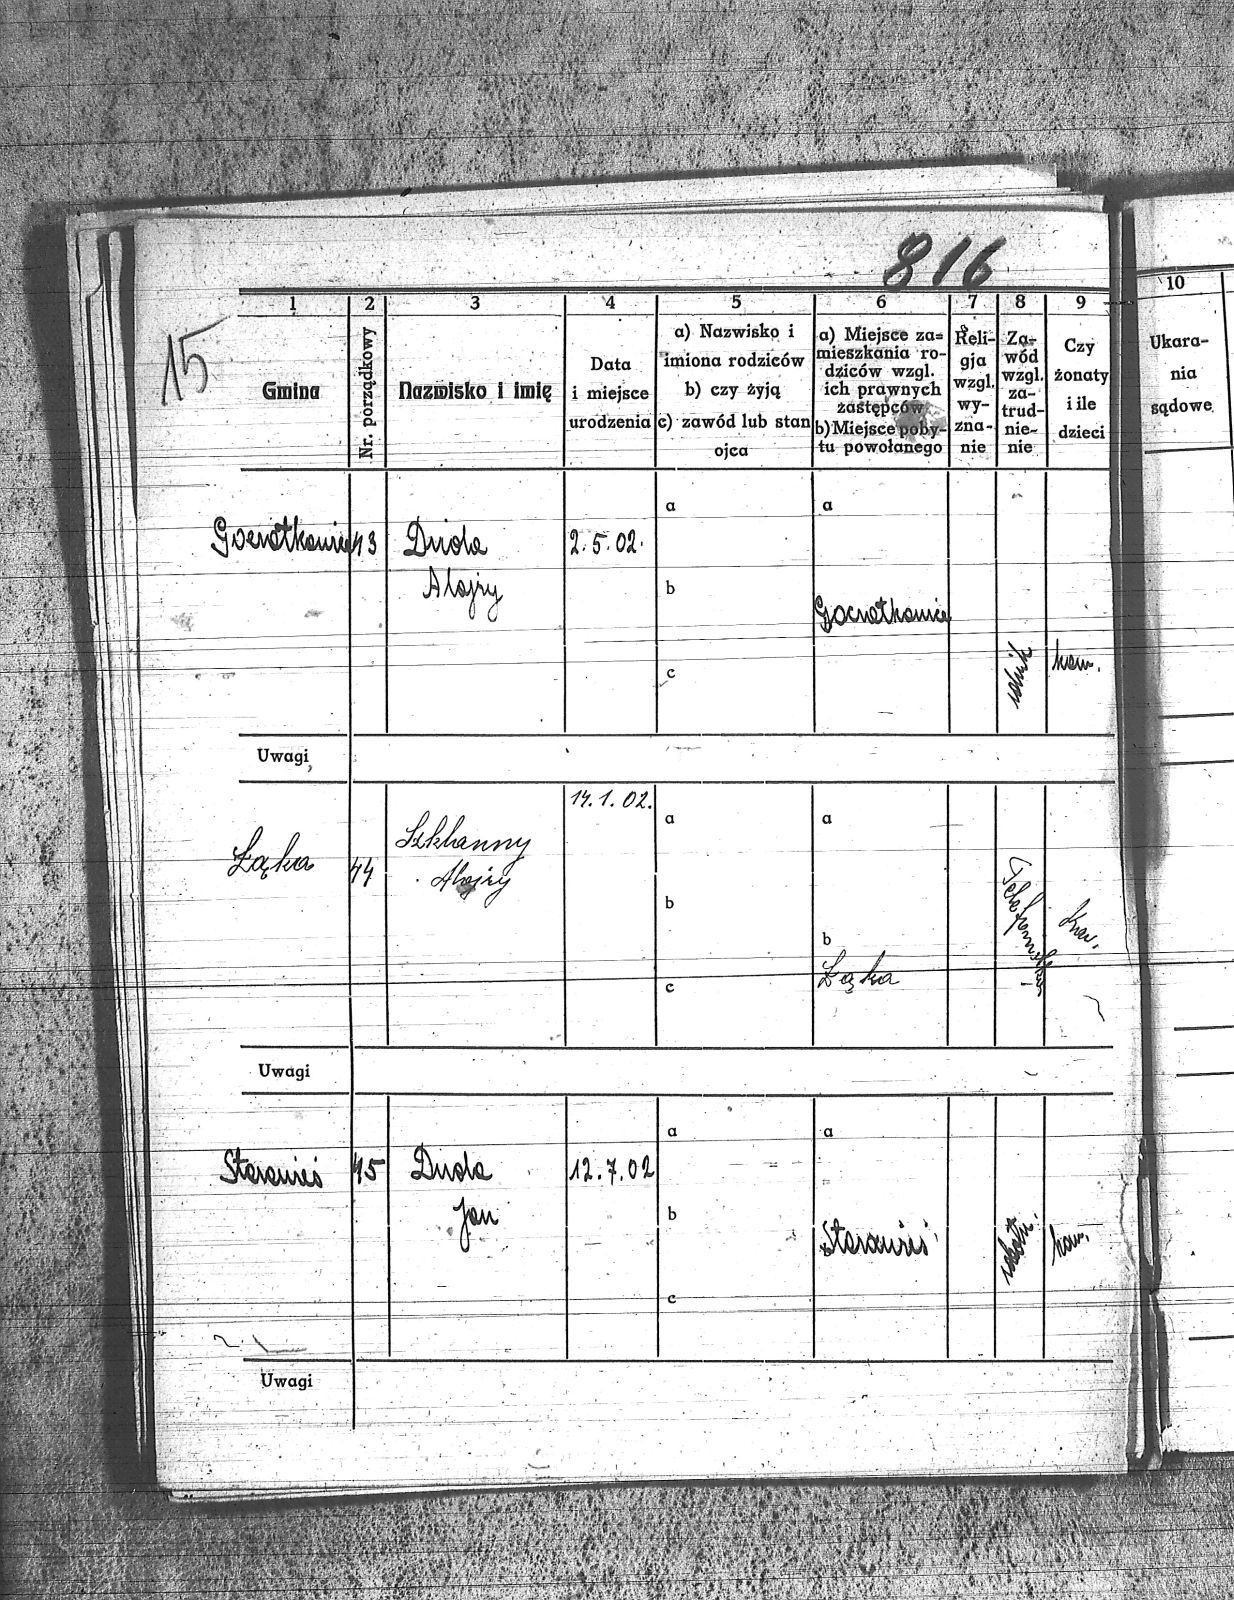 816
15.
1 2 3 4 5 6 7 8 9 10
Gmina
Nr. porządkowy
Nazwisko i imię
Data
i miejsce
urodzenia
a) Nazwisko i
imiona rodziców
b) czy żyją
c) zawód lub stan
ojca
a) Miejsce za=
mieszkania ro-
dziców wzgl.
ich prawnych
zastępców
b) Miejsce poby-
tu powołanego
Reli-
gja
wzgl.
wy-
zna-
nie
Za-
wód
wzgl.
za-
trud-
nie-
nie
Czy
żonaty
i ile
dzieci
Ukara-
nia
sądowe
Goczałkowice 43 Duda 2.5.02. a a
Alojzy
b
Goczałkowice
c
kaw.
Uwagi
14.1.02.
a a
Łąka 44 Szklanny
Alojzy
b
b
Łąka
c
kaw.
Uwagi
a a
Starawieś 45 Duda 12.7.02
Jan
b
Starawieś
kaw.
c
Uwagi